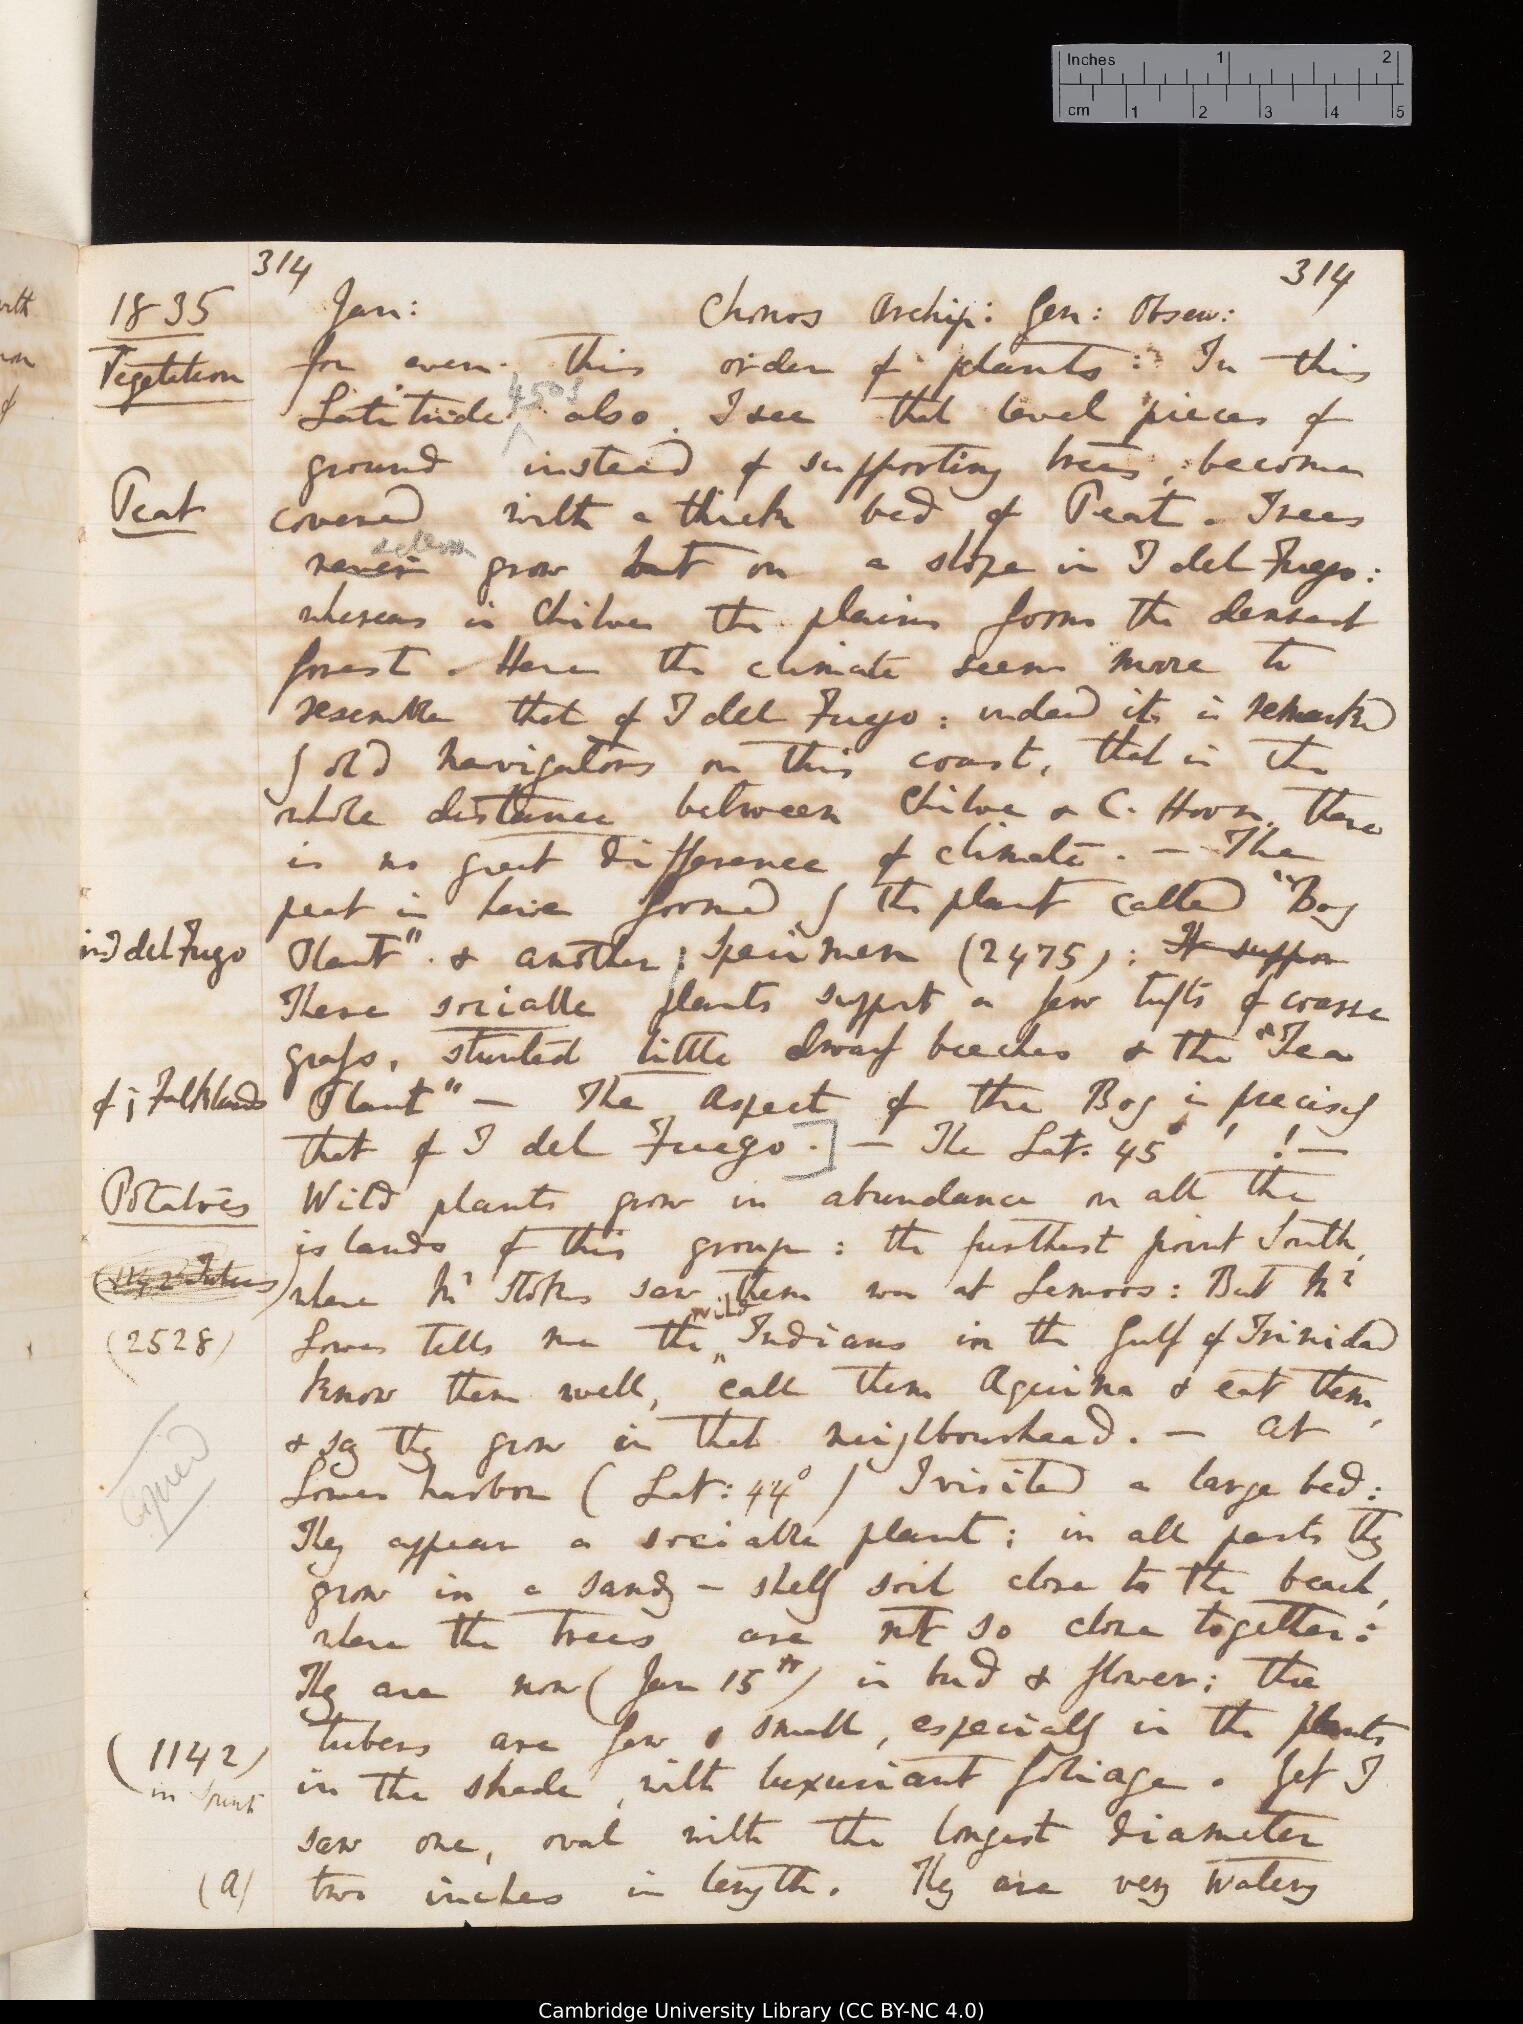 Inches 1 2
cm 1 2 3 4 5
314 314
1835 Jan: Chonos Archip: Gen: Obser:
Vegetation for even this order of plants: In this
45°S
Latitude also, I see that level pieces of
ground instead of supporting trees, become
Peat covered with a thick bed of Peat. Trees
seldom
never grow but on a slope in T del Fuego:
whereas in Chiloe the plains form the densest
forest. Here the climate seems more to
resemble that of T del Fuego: indeed it is remarked
by old navigators on this coast, that in the
whole distance between Chiloe & C. Horn, there
is no great difference of climate. — The
peat is here formed by the plant called "Bog
in T del Fuego Plant" & another; Specimen (2475): It suppor
These sociable plants support a few tufts of coarse
grass, stunted little dwarf beeches & the "Tea
of ye Falklands Plant" — The aspect of the Bog is precisely
that of T del Fuego.] — The Lat. 45° ! ! —
Potatoes Wild plants grow in abundance on all the
islands of this group: the furthest point South,
where Mr Stokes saw them was at Lemoos: But Mr
wild
(2528) Lowe tells me the Indians in the Gulf of Trinidad
know them well, call them Aquina & eat them,
& say they grow in that neighbourhead. — At
copied
Lowes harbor (Lat: 44°) I visited a large bed:
They appear a sociable plant; in all parts they
grow in a sandy - shelly soil close to the beach,
where the trees are not so close together:
They are now (Jan 15th) in bud & flower; the
tubers are few & small, especially in the plants
(1142) in the shade, with luxuriant foliage. Yet I
in Spirits
saw one, oval with the longest diameter
(a) two inches in length. They are very watery
Cambridge University Library (CC BY-NC 4.0)